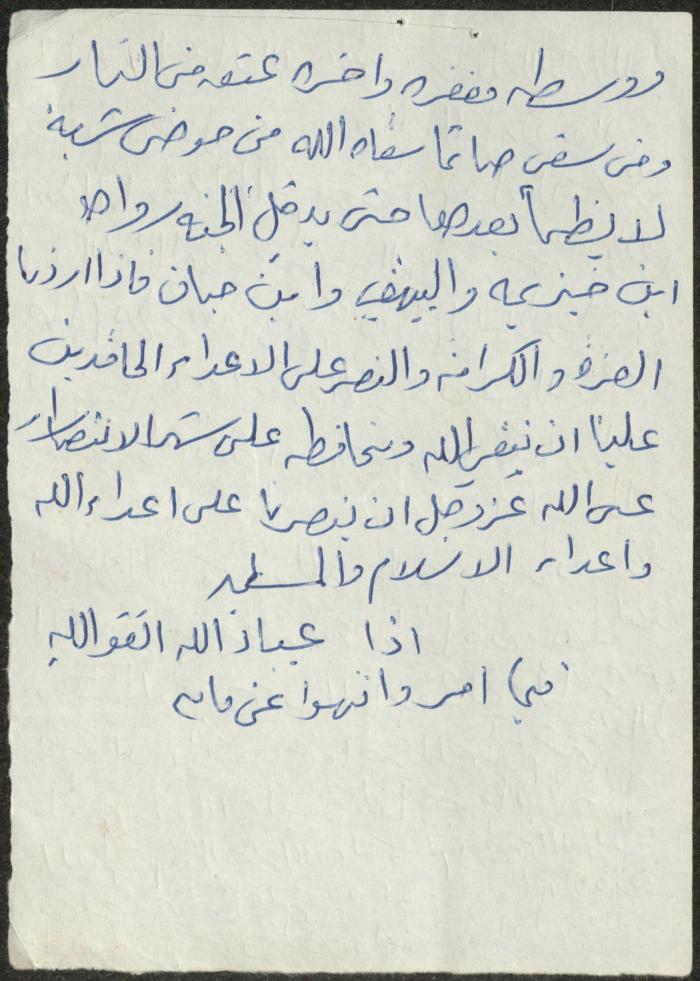 ووسطه مغفره واخره عتق من النار
ومن سقى صائما سقاه الله من حوضى شربة
لا يظمأ بعدها حتى يدخل الجنه رواه
ابن خزيمه والبيهقي وابن حبان فاذا اردنا
العزه والكرامه والنصر على الاعداء الحاقدين
علينا ان نتقي الله ونحافظ على شهر الانتصارات
عسى الله عز وجل ان ينصرنا على اعداء الله
واعداء الاسلام والمسلمين
اذا عباد الله اتقو الله
فيما امر وانتهوا عن